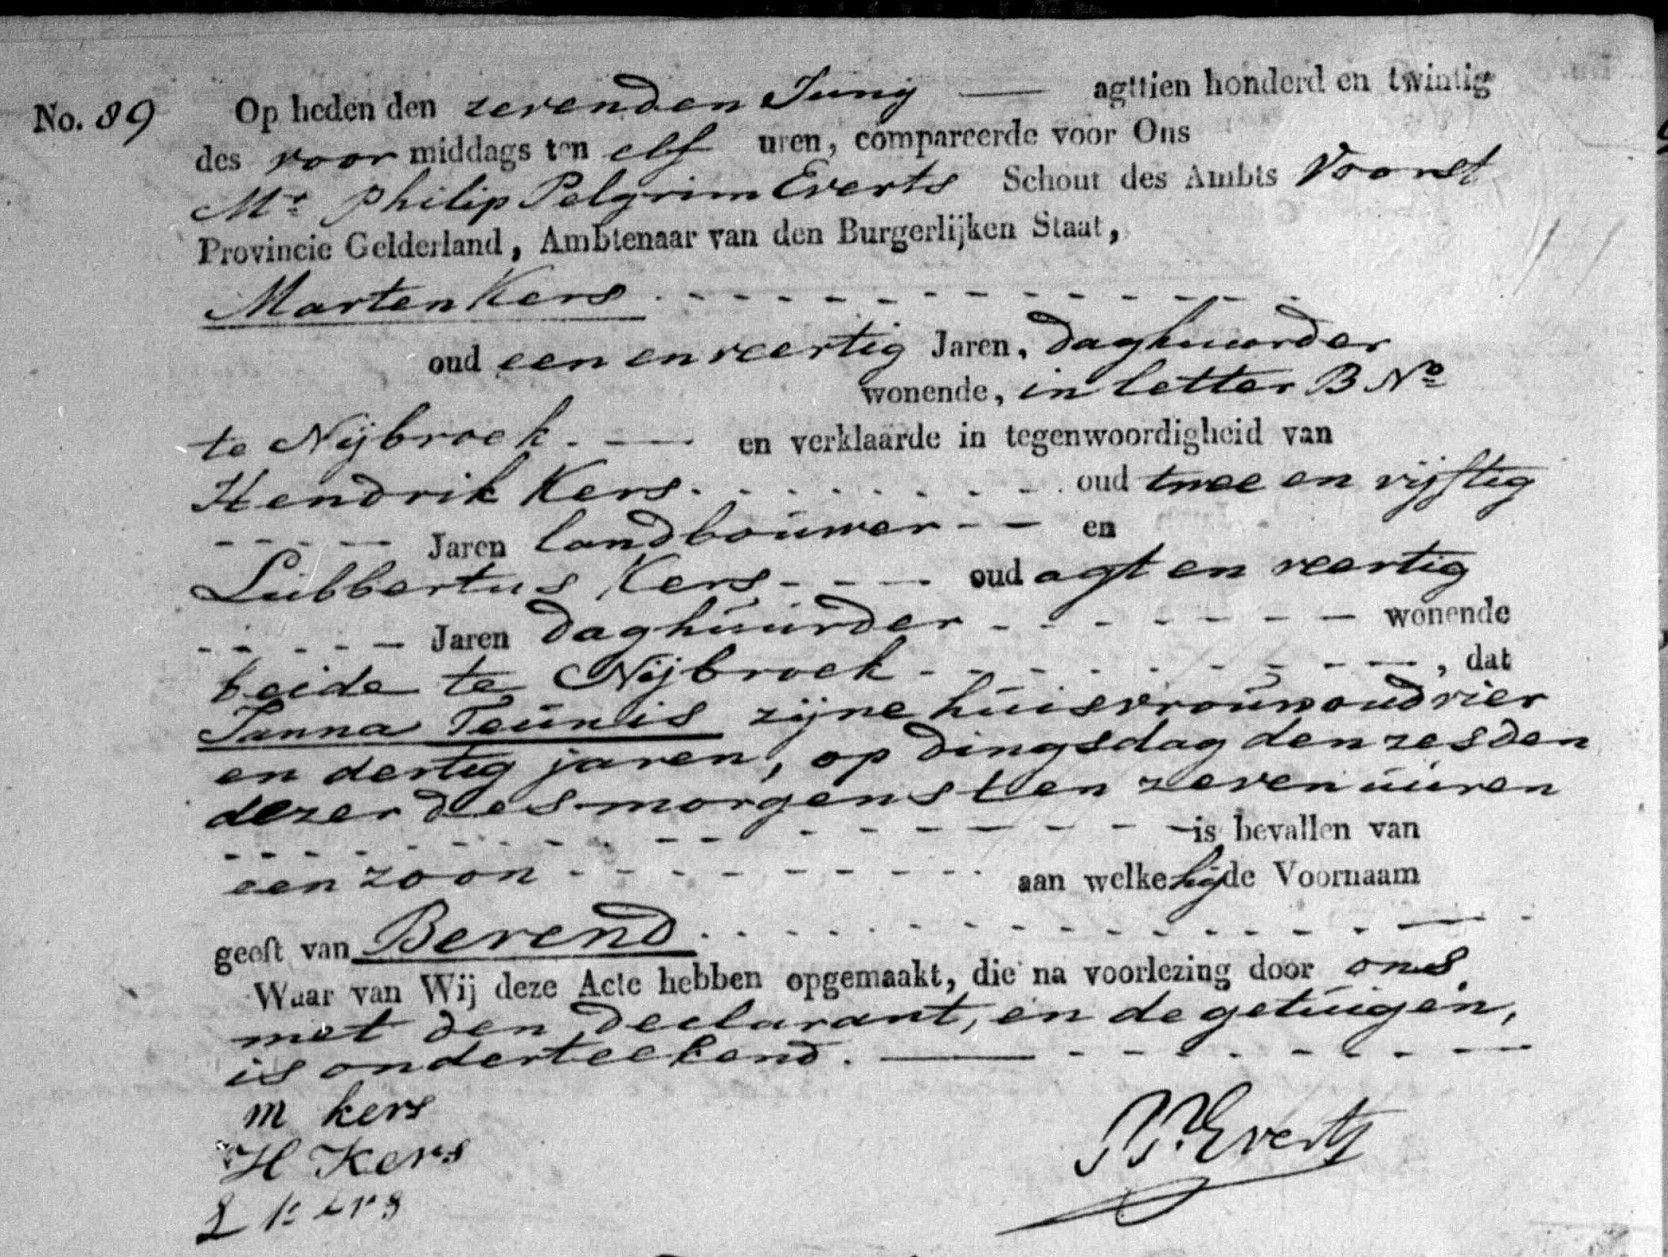 No. 89 Op heden den zevenden Juny — agttien honderd en twintig
des voor middags ten elf uren, compareerde voor Ons
Mr. Philip Pelgrim Everts Schout des Ambts Voorst
Provincie Gelderland, Ambtenaar van den Burgerlijken Staat,
Marten Kers
oud een en veertig Jaren, daghuurder
wonende, in letter B No
te Nijbroek. — en verklaarde in tegenwoordigheid van
Hendrik Kers oud twee en vijftig
Jaren landbouwer en
Lubbertus Kers oud agt en veertig
Jaren daghuurder wonende
beide te Nijbroek , dat
Janna Teunis zijne huisvrouw oud vier
en dertig jaren, op dingsdag den zesden
dezer des morgens ten zeven uuren
is bevallen van
een zoon aan welke hij de Voornaam
geeft van Berend
Waar van Wij deze Acte hebben opgemaakt, die na voorlezing door ons
met den declarant, en de getuigen,
is onderteekend.
m kers
H Kers
L kers
PP. Everts